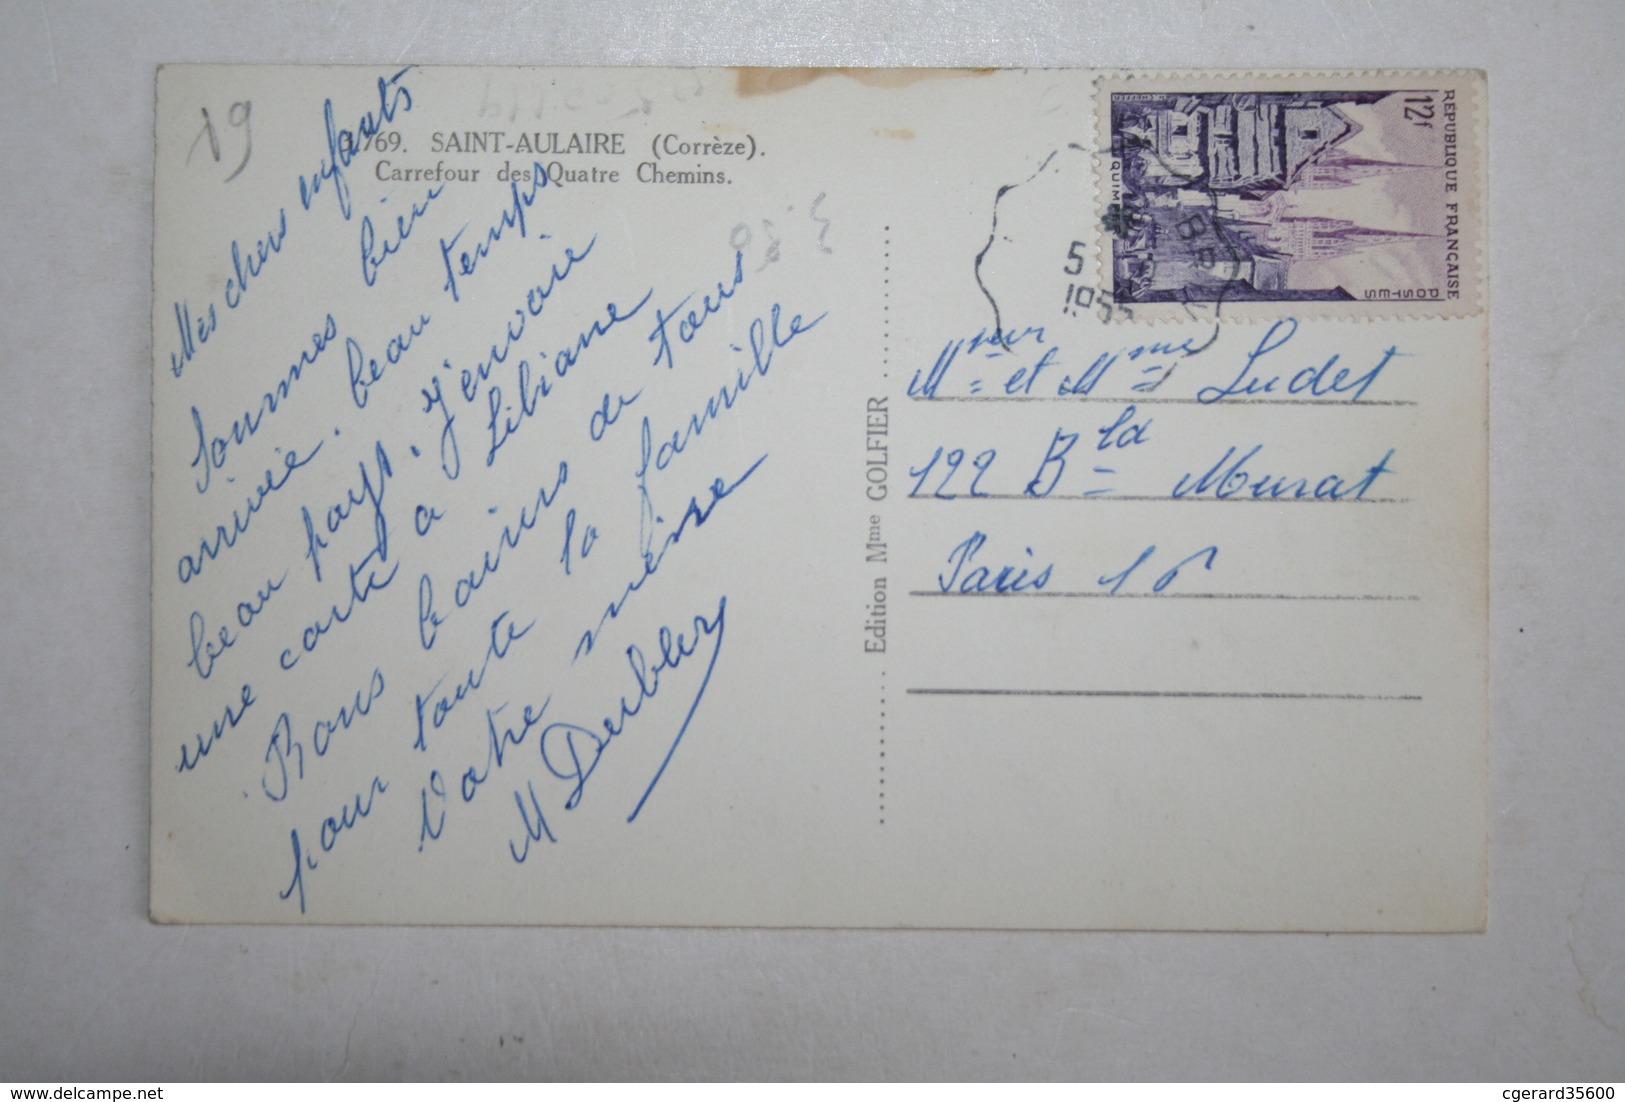 19
1.769. SAINT-AULAIRE (Corrèze).
Carrefour des Quatre Chemins.
3.50
Mes chers enfants
Sommes bien
arrivée. beau temps
beau pays, j'envoie
une carte a Liliane
Bons baisers de tous
pour toute la famille
Votre mère
M Deubler
Edition Mme GOLFIER
RÉPUBLIQUE FRANÇAISE
12f
POSTES
QUIMPER
5
1955
Mrieur et Mme Ludet
122 Bld Murat
Paris 16
delcampe.net
cgerard35600